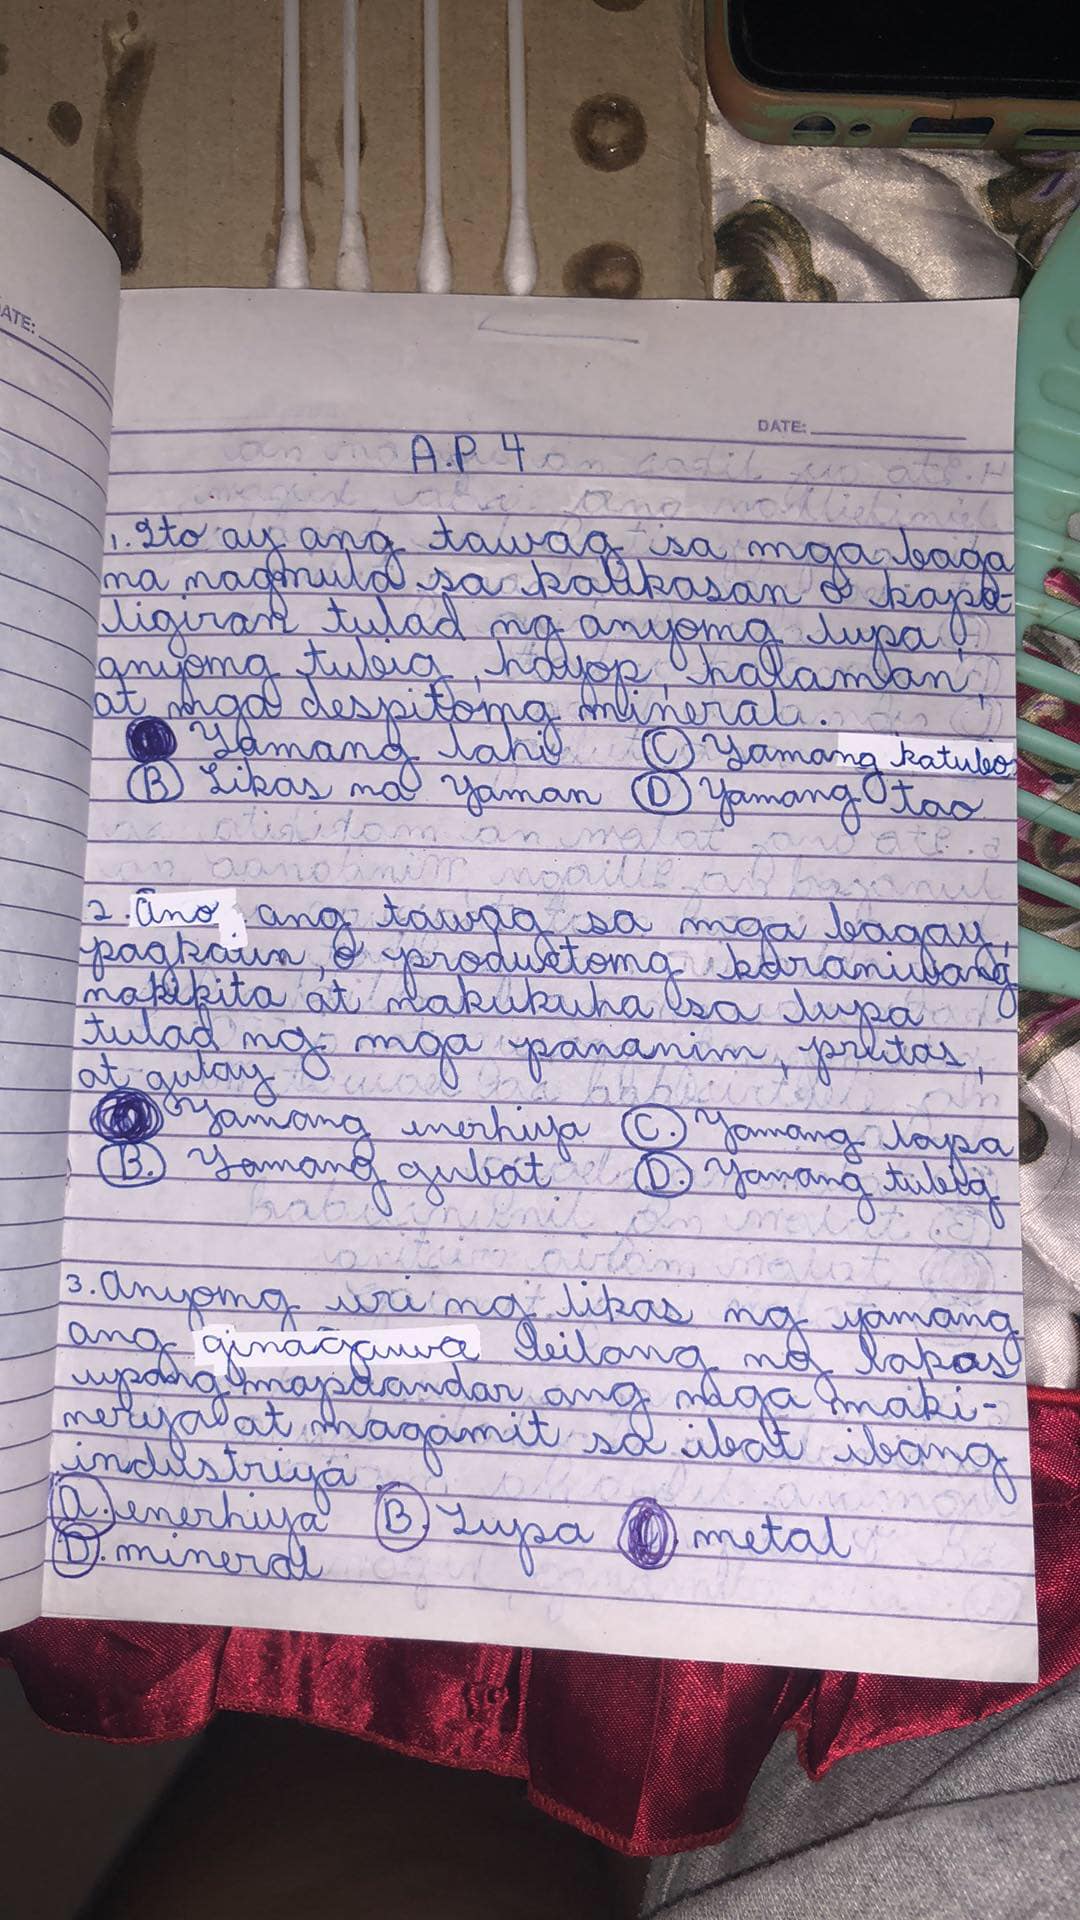 ATE:
DATE:
A.P. 4
1. Ito ay ang tawag sa mga baga
na nagmula sa kalikasan o kapa-
ligiran tulad ng anyomg lupa,
anyomg tubig, hayop, halaman,
at mga despitomg mineral.
Yamang lahi (C) Yamang katubo
(B) Likas na Yaman (D) Yamang tao
2. Ano ang tawag sa mga bagay,
pagkain, o produktomg karaniwang
nakikita at nakukuha sa lupa
tulad ng mga pananim, prutas,
at gulay
Yamang enerhiya (C.) Yamang lupa
(B.) Yamang gubat (D.) Yamang tubig
3. Anyomg uri ng likas ng yamang
ang ginagawa bilang ng lakas
upang mapaandar ang mga maki-
nerya at magamit sa ibat ibang
industriya.
(A.) enerhiya (B.) Lupa metal
(D.) mineral